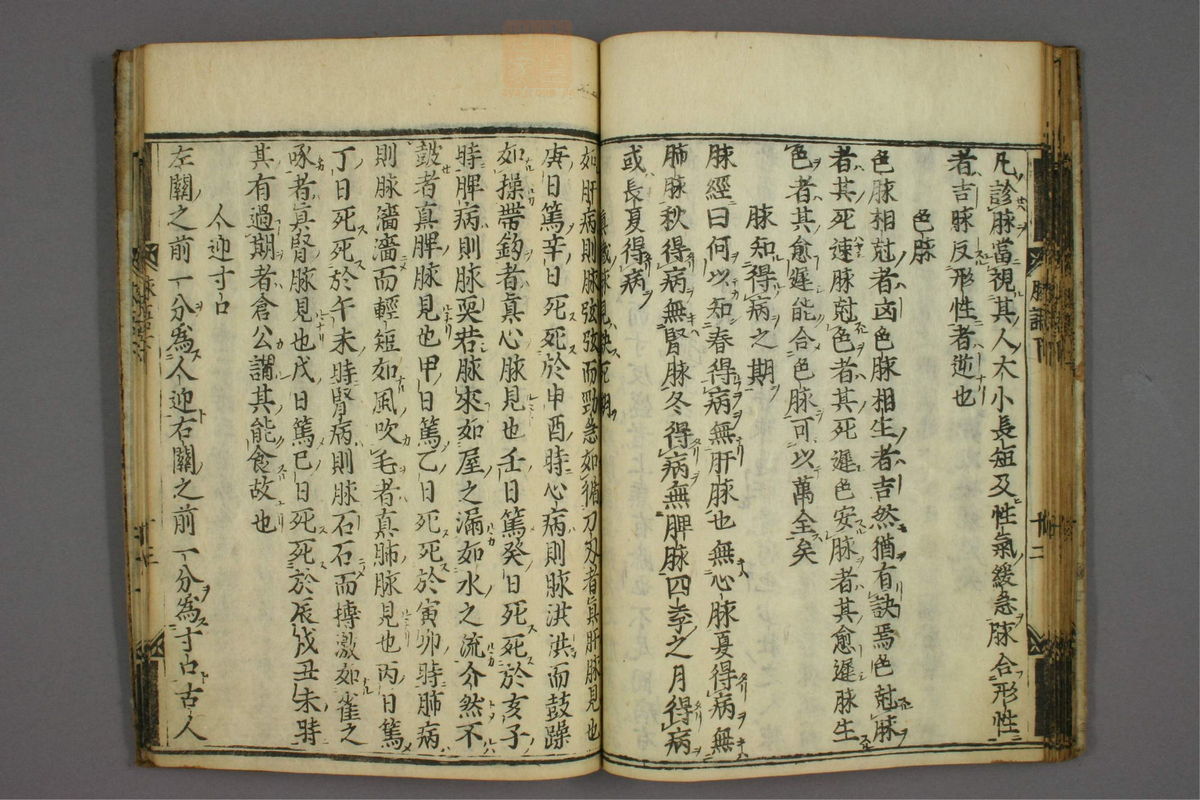 凡診脉當視其人大小長短及性氣緩急脉合形性
者吉脉反形性者逆也
色脉
色脉相尅者凶色脉相生者吉然猶有訣焉色尅脉
者其死速脉尅色者其死遲色安脉者其愈遲脉生
色者其愈遲能合色脉可以萬全矣
脉知得病之期
脉經曰何以知春得病無肝脉也無心脉夏得病無
肺脉秋得病無腎脉冬得病無脾脉四季之月得病
或長夏得病
真臓脉見決死期
如肝病則脉弦弦而勁急如循刀刃者眞肝脉見也
庚日篤辛日死死於申酉時心病則脉洪洪而鼓躁
如操帶鈎者真心脉見也壬日篤癸日死死於亥子
時脾病則脉耎若脉來如屋之漏如水之流介然不
鼓者真脾脉見也甲日篤乙日死死於寅卯時肺病
則脉濇濇而輕短如風吹毛者真肺脉見也丙日篤
丁日死死於午未時腎病則脉石石而摶激如雀之
啄者眞腎脉見也戊日篤巳日死死於辰戌丑未時
其有過期者倉公謂其能食故也
人迎寸口
左關之前一分為人迎右關之前一分為寸口古人